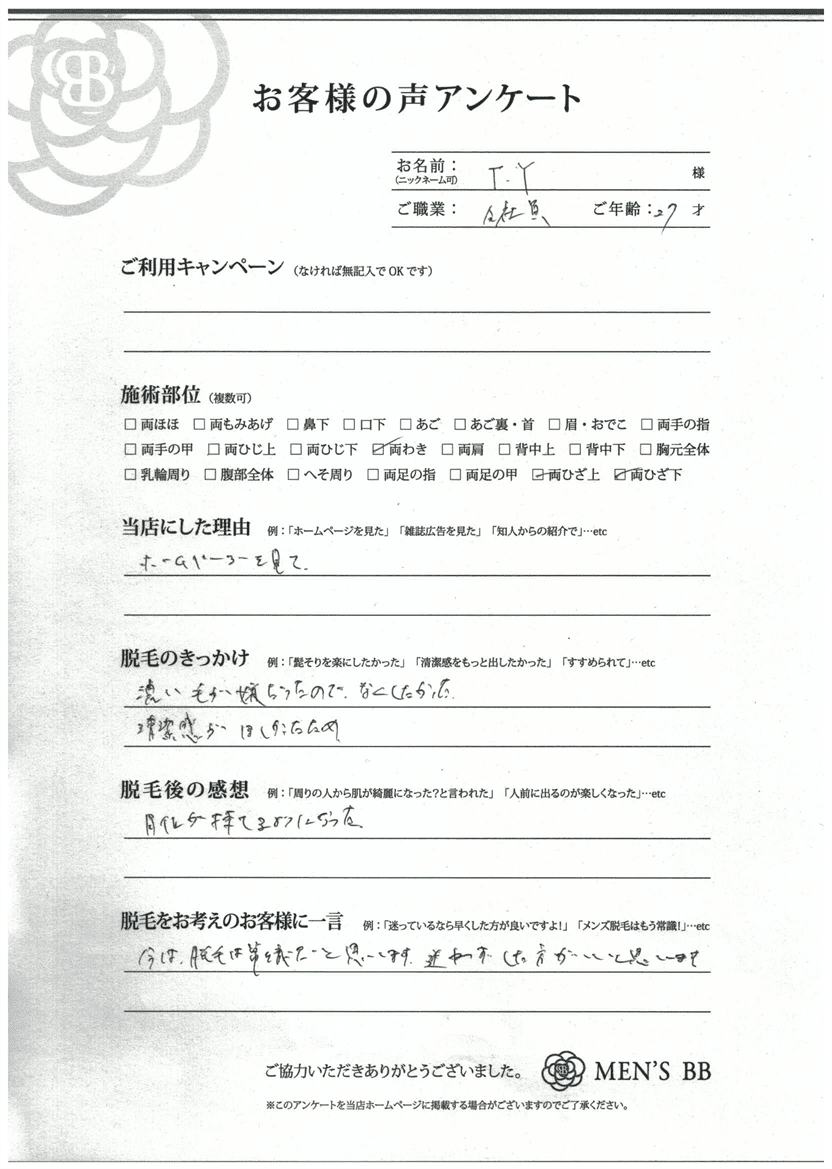 BB
お客様の声アンケート
お名前：
(ニックネーム可)
T.Y 様
ご職業：会社員 ご年齢：27才
ご利用キャンペーン（なければ無記入でOKです）
施術部位（複数可）
□両ほほ □両もみあげ □鼻下 □口下 □あご □あご裏・首 □眉・おでこ □両手の指
□両手の甲 □両ひじ上 □両ひじ下 ☑両わき □両肩 □背中上 □背中下 □胸元全体
□乳輪周り □腹部全体 □へそ周り □両足の指 □両足の甲 ☑両ひざ上 ☑両ひざ下
当店にした理由 例：「ホームページを見た」「雑誌広告を見た」「知人からの紹介で」…etc
ホームページを見て.
脱毛のきっかけ 例：「髭そりを楽にしたかった」「清潔感をもっと出したかった」「すすめられて」…etc
濃い毛が嫌だったので、なくしたかった.
清潔感がほしかったため
脱毛後の感想 例：「周りの人から肌が綺麗になった?と言われた」「人前に出るのが楽しくなった」…etc
自信が持てるようになった.
脱毛をお考えのお客様に一言 例：「迷っているなら早くした方が良いですよ!」「メンズ脱毛はもう常識!」…etc
今は、脱毛は常識だと思います. 迷わずした方がいいと思います
ご協力いただきありがとうございました。 BB MEN'S BB
※このアンケートを当店ホームページに掲載する場合がございますのでご了承ください。